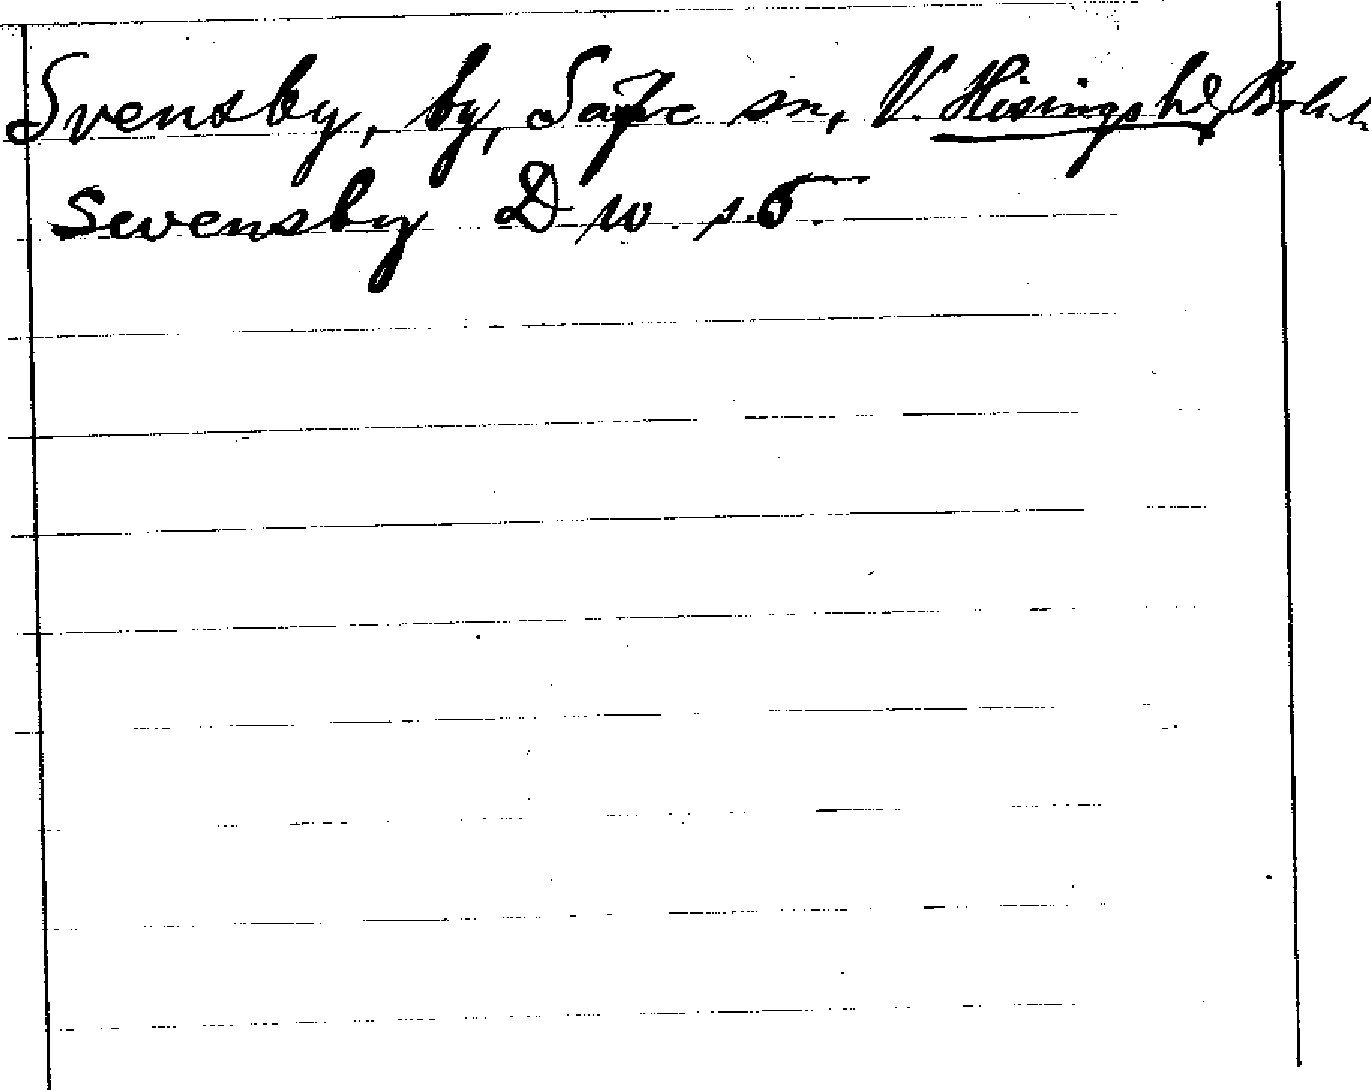 Svensby, by, Säve sn, V. Hisings hd, Boh.
Swensby D 10 s. 5.